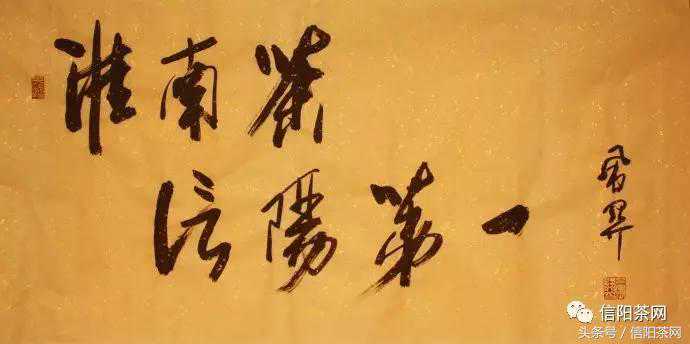 淮南茶
信陽第一
信阳茶网
头条号 / 信阳茶网